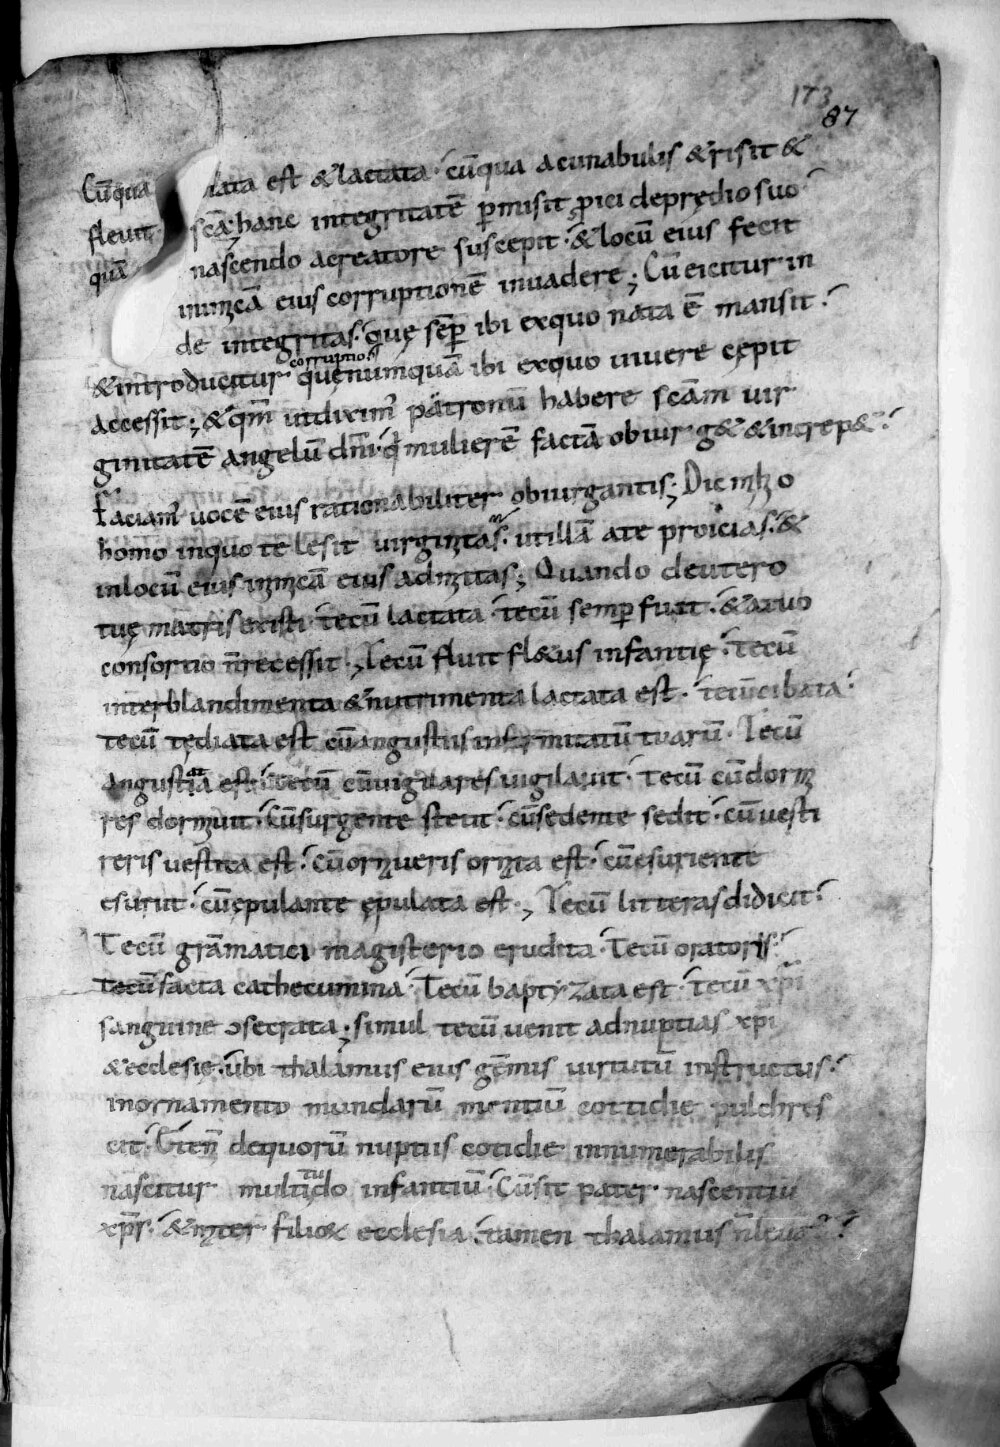 173
87
Cū qua nata est & lactata · cū qua a cunabulis & risit &
fleuit · scā; hanc integritatē ꝑmisit ꝓici de prędio suo ·
quā nascendo a creatore suscepit · & locū eius fecit
inimicā eius corruptionē inuadere; Cū eicitur in
de integritas · quę sēꝑ ibi ex quo nata ē mansit ·
& introducitur corruptio · que numquā ibi ex quo uiuere cępit
accessit; & qm̄ ut diximꝰ patronū habere scām uir
ginitatē angelū dn̄i · qđ mulierē factā obiurg& & increp& ·
faciamꝰ uocē eius rationabiliter obiurgantis; Dic mihi o
homo in quo te lesit uirginitas · ut illā a te proicias · &
in locū eius inimicā eius admittas; Quando de utero
tuę matris existi · tecū lactata · tecū semꝑ fuit · & a tuo
consortio n̄ recessit; Tecū fluit fl&us infantię · tecū
inter blandimenta & nutrimenta lactata est · tecū cibata ·
tecū tędiata est cū angustiis infirmitatū tuarū · Tecū
angustiata est · tecū cū uigilares uigilauit · tecū cū dormi
res dormiuit · cū surgente stetit · cū sedente sedit · cū uesti
reris uestita est · cū ornareris ornata est · cū esuriente
esuriit · cū epulante epulata est; Tecū litteras didicit ·
Tecū grāmatici magisterio erudita · Tecū oratoris ·
Tecū facta cathecumina · Tecū baptyzata est · tecū xp̄i
sanguine ↄsecrata; simul tecū uenit ad nuptias xp̄i
& ecclesię · ubi thalamus eius gēmis uirtutū instructus ·
in ornamento mundarū mentiū cottidie pulchres
cit · de quorū nuptiis cotidie innumerabilis
nascitur multitudo infantiū · Cū sit pater nascentiū
xp̄s · & mater filioꝝ ecclesia · tamen thalamus n̄